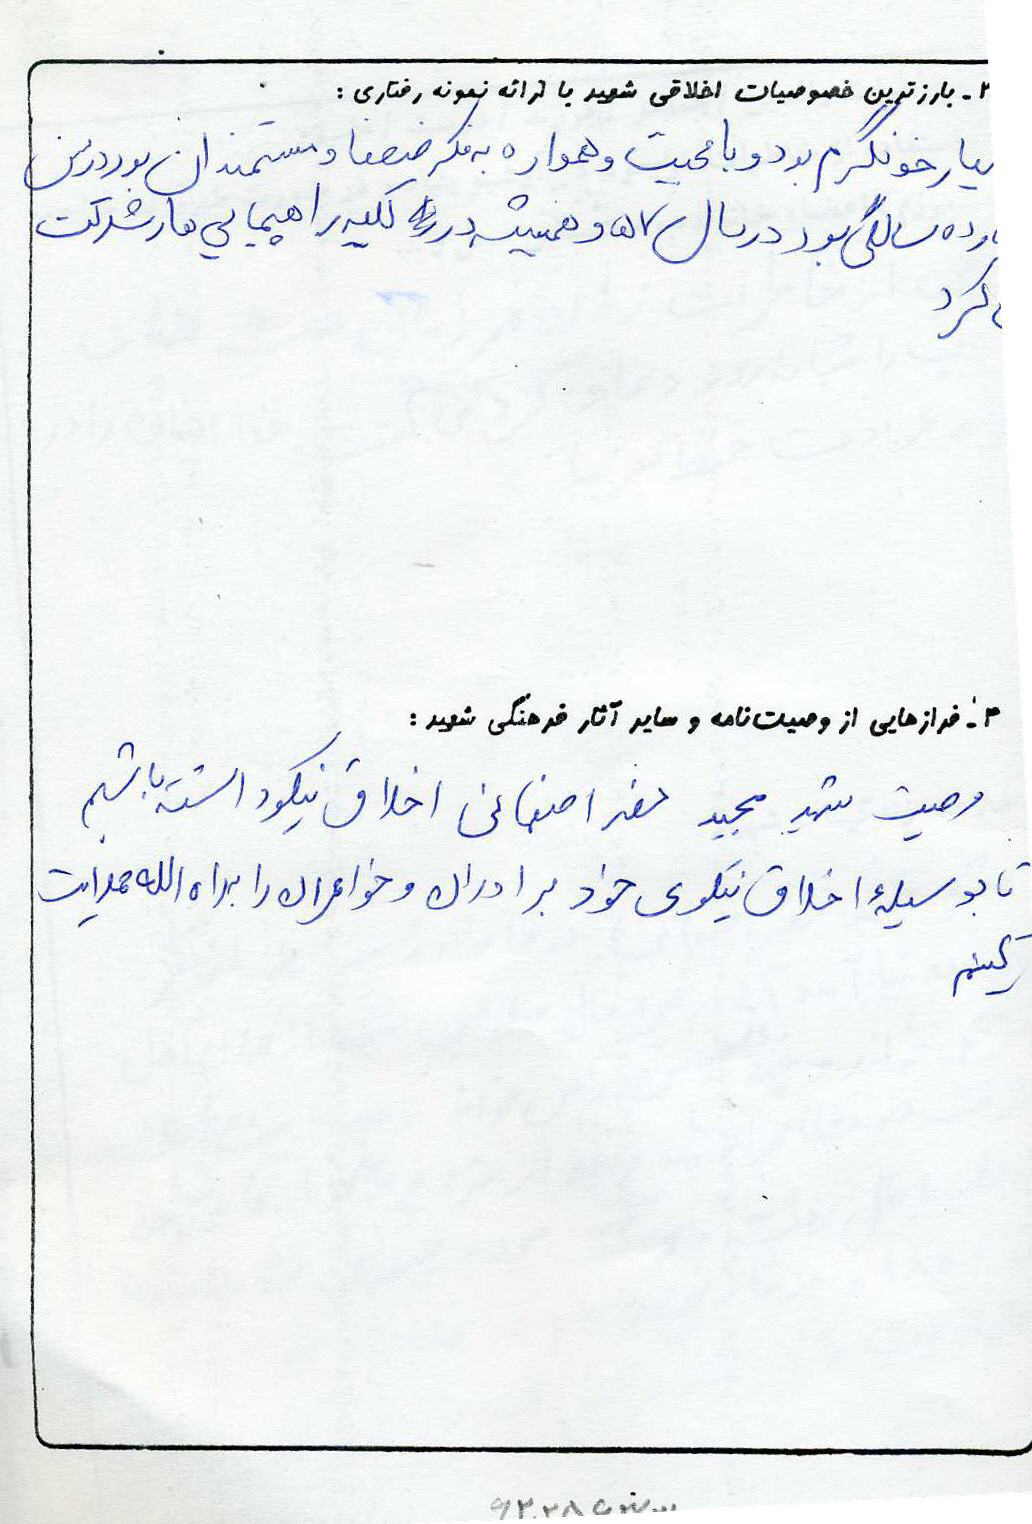 ۲ـ بارزترین خصوصیات اخلاقی شهید با ارائه نمونه رفتاری :
سیار خونگرم بود و با محبت و همواره به فکر ضعفا و مستمندان بود در سن
زده سالگی بود در سال ۵۷ و همیشه در کلیه راهپیمایی ها شرکت
ی کرد
۳ـ فرازهایی از وصیت‌نامه و سایر آثار فرهنگی شهید :
وصیت شهید مجید اصفهانی اخلاق نیکو داشته باشیم
تا بوسیلهٔ اخلاق نیکوی خود برادران و خواهران را براه الله هدایت
کنیم